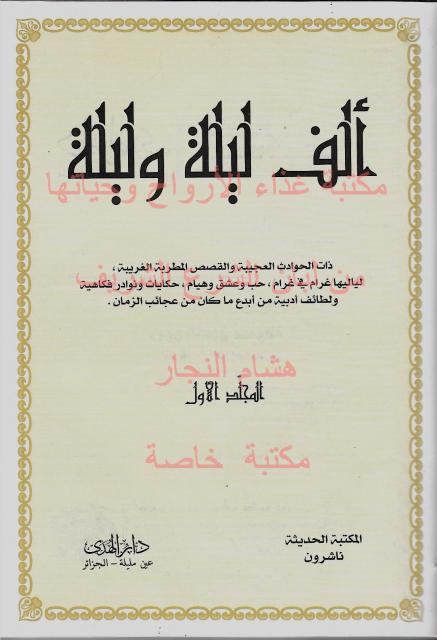 ألف ليلة وليلة
مكتبة غذاء الأرواح وحياتها
ذات الحوادث العجيبة والقصص المطربة الغريبة ،
من لبان الشرع الشريف
لياليها غرام في غرام ، حب وعشق وهيام ، حكايات ونوادر فكاهية
ولطائف أدبية من أبدع ما كان من عجائب الزمان .
هشام النجار
المجلد الأول
مكتبة خاصة
المكتبة الحديثة
ناشرون
دار الهدى
عين مليلة - الجزائر